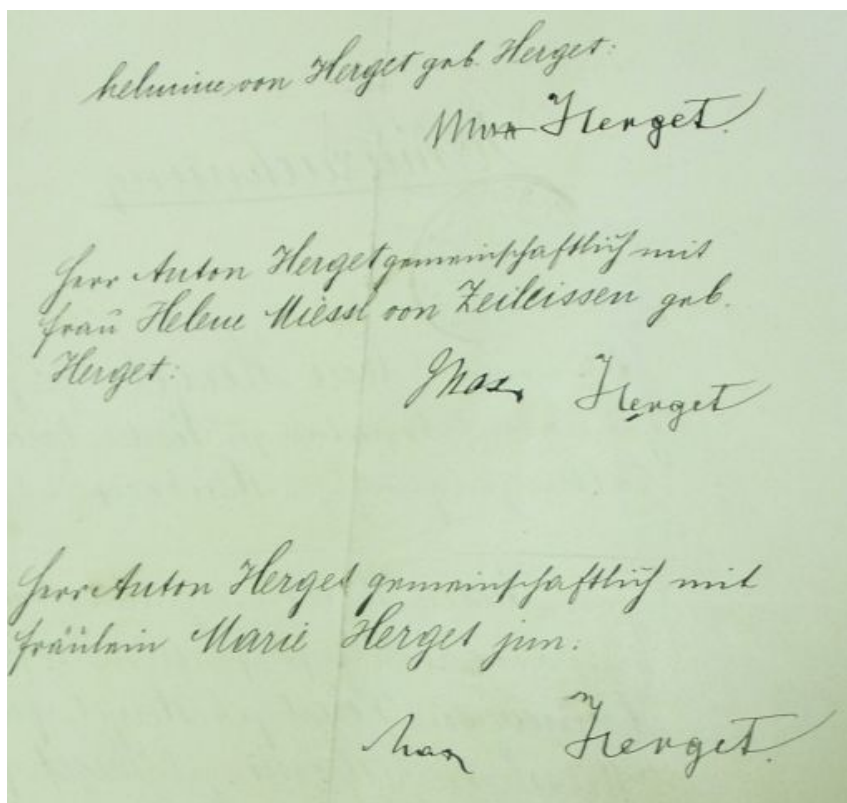 helmine von Herget geb. Herget:
Max Herget.
Herr Anton Herget gemeinschaftlich mit
Frau Helene Miessl von Zeileissen geb.
Herget:
Max Herget
Herr Anton Herget gemeinschaftlich mit
Fräulein Marie Herget jun:
Max Herget.